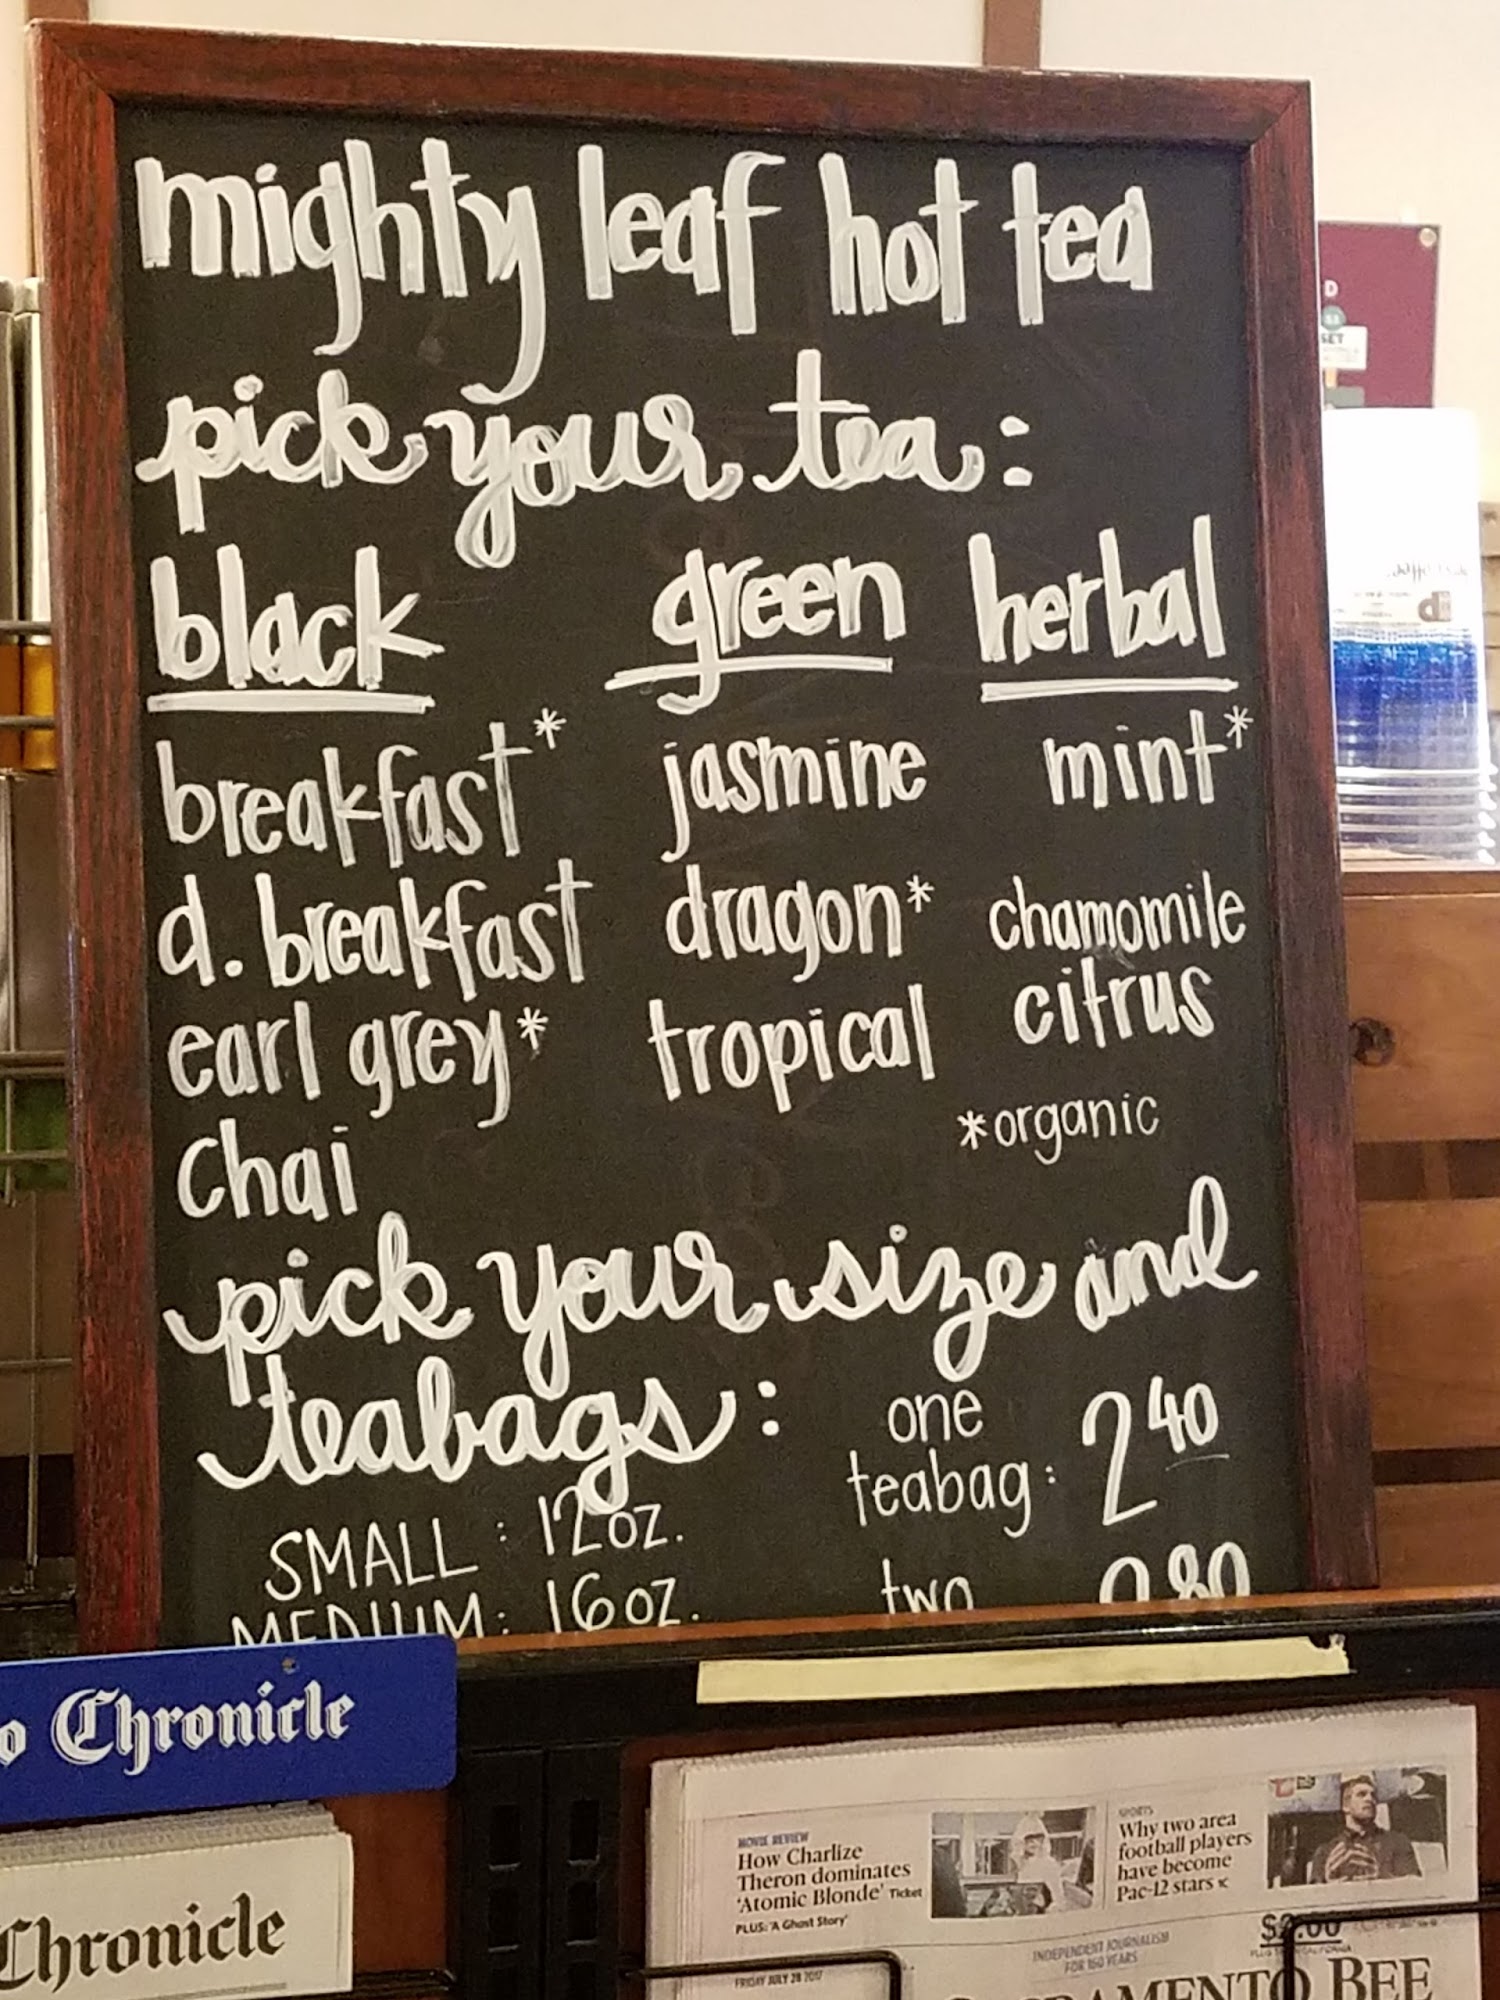 mighty leaf hot tea
pick your tea:
black green herbal
breakfast* jasmine mint*
d. breakfast dragon* chamomile
citrus
earl grey* tropical
*organic
Chai
pick your size and
teabags:
one
teabag: 2 40
SMALL: 12 oz.
MEDIUM: 16 oz. two 2 80
Chronicle
Chronicle
MOVIE REVIEW
How Charlize
Theron dominates
'Atomic Blonde' Ticket
PLUS: 'A Ghost Story'
SPORTS
Why two area
football players
have become
Pac-12 stars
$2.00
INDEPENDENT JOURNALISM
FOR 160 YEARS
FRIDAY JULY 28 2017
SACRAMENTO BEE